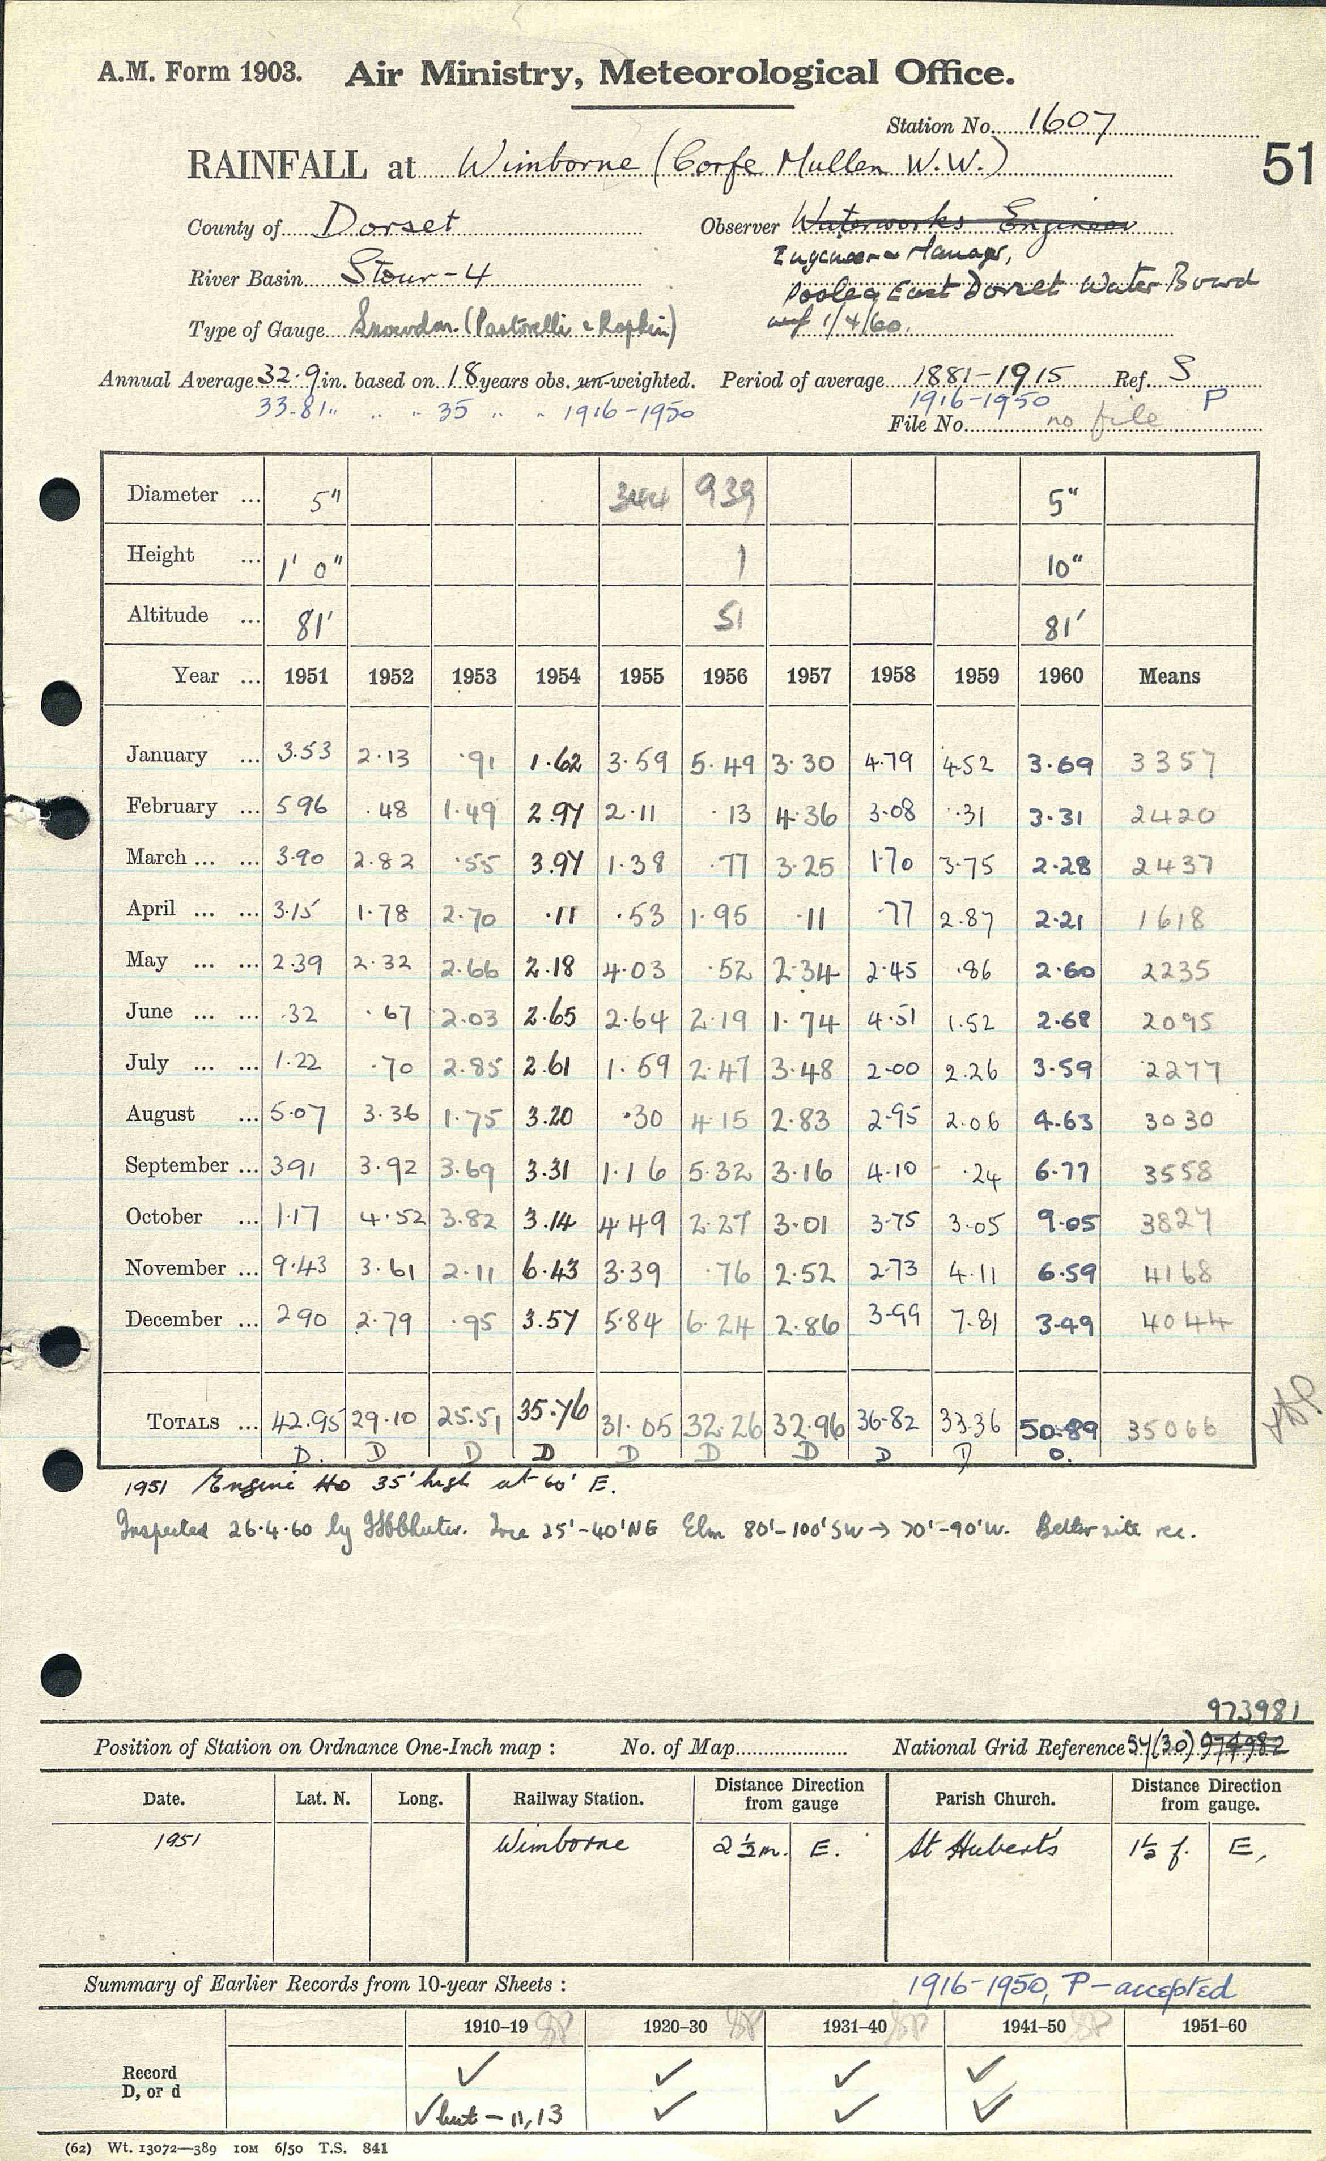 A.M. Form 1903. Air Ministry, Meteorological Office.
Station No. 1607
RAINFALL at Wimborne (Corfe Mullen W.W.)
51
County of Dorset
Observer Waterworks Engineer
Engineer & Manager,
River Basin Stour-4
Poole & East Dorset Water Board
Type of Gauge Snowdon (Pastorelli & Rapkin)
wef 1/4/60.
Annual Average 32.9 in. based on 18 years obs. un-weighted. Period of average 1881-1915 Ref. S
33.81" " " 35 " " 1916-1950 1916-1950 P
File No. no file
Diameter ... 5" 344 939 5"
Height ... 1' 0" 1 10"
Altitude ... 81' 51 81'
Year ... 1951 1952 1953 1954 1955 1956 1957 1958 1959 1960 Means
January ... 3.53 2.13 .91 1.62 3.59 5.49 3.30 4.79 4.52 3.69 3357
February ... 5.96 .48 1.49 2.97 2.11 .13 4.36 3.08 .31 3.31 2420
March ... ... 3.90 2.82 .55 3.97 1.38 .77 3.25 1.70 3.75 2.28 2437
April ... ... 3.15 1.78 2.70 .11 .53 1.95 .11 .77 2.87 2.21 1618
May ... ... 2.39 2.32 2.66 2.18 4.03 .52 2.34 2.45 .86 2.60 2235
June ... ... .32 .67 2.03 2.65 2.64 2.19 1.74 4.51 1.52 2.68 2095
July ... ... 1.22 .70 2.85 2.61 1.59 2.47 3.48 2.00 2.26 3.59 2277
August ... 5.07 3.36 1.75 3.20 .30 4.15 2.83 2.95 2.06 4.63 3030
September ... 3.91 3.92 3.69 3.31 1.16 5.32 3.16 4.10 .24 6.77 3558
October ... 1.17 4.52 3.82 3.14 4.49 2.27 3.01 3.75 3.05 9.05 3827
November ... 9.43 3.61 2.11 6.43 3.39 .76 2.52 2.73 4.11 6.59 4168
December ... 2.90 2.79 .95 3.57 5.84 6.24 2.86 3.99 7.81 3.49 4044
TOTALS ... 42.95 29.10 25.51 35.76 31.05 32.26 32.96 36.82 33.36 50.89 35066
D. D D D D D D D D D.
1951 Engine Ho 35' high at 60' E.
Inspected 26.4.60 by Tree 25'-40' NE Elm 80'-100' SW → 70'-90' W. Better site rec.
973981
Position of Station on Ordnance One-Inch map : No. of Map National Grid Reference SY(30) 974982
Date. Lat. N. Long. Railway Station. Distance Direction from gauge Parish Church. Distance Direction from gauge.
1951 Wimborne 2½ m. E. St Hubert's 1½ f. E.
Summary of Earlier Records from 10-year Sheets : 1916-1950, P-accepted
1910-19 1920-30 1931-40 1941-50 1951-60
Record ✓ ✓ ✓ ✓
D, or d ✓ but - 11, 13 ✓ ✓ ✓
(62) Wt. 13072—389 10M 6/50 T.S. 841